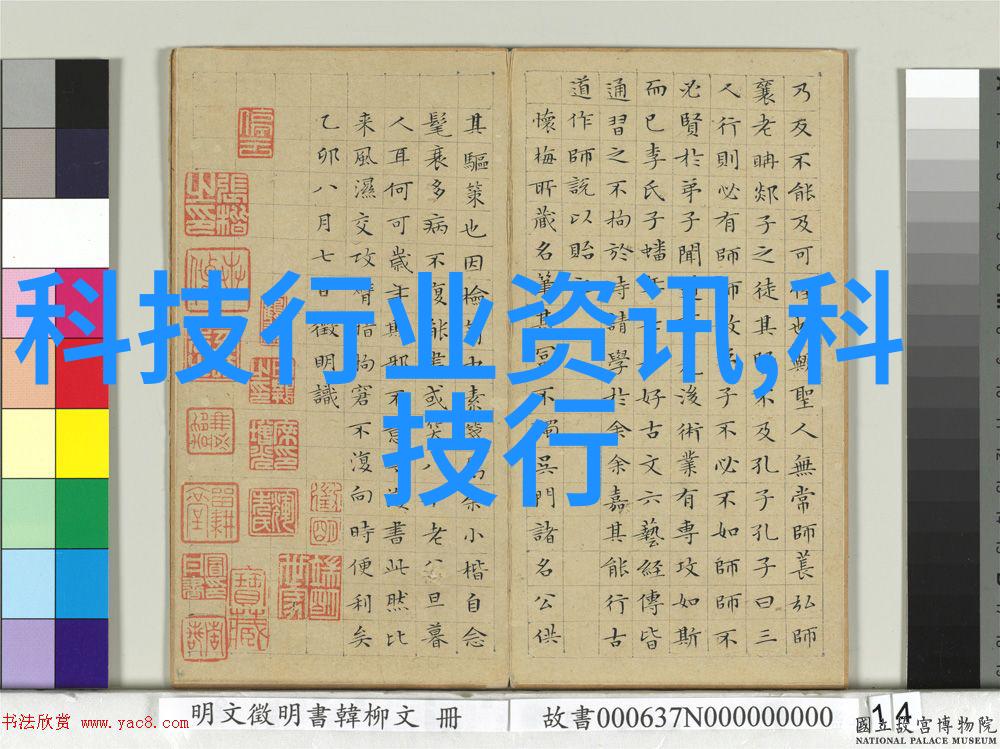 科技行业资讯,科
技行
乃反不能及可也歟聖人無常師萇弘師
襄老聃郯子之徒其賢不及孔子孔子曰三
人行則必有師故子不必不如師師不
必賢於弟子聞後術業有專攻如斯
而已李氏子蟠好古文六藝經傳皆
通習之不拘於時請學於余余嘉其能行古
道作師說以貽
懷梅所藏名筆甚富不獨吳門諸名公供
其驅策也因檢素余小楷自念
髦衰多病不復能書或笑八老公旦暮
人耳何可歲斯邪不意書此然比
来風濕交攻臂指拘窘不復向時便利矣
乙卯八月七日徵明識
明文徵明書韓柳文 冊
故書000637N000000000
14
書法欣赏 www.yac8.com
國立故宮博物院
NATIONAL PALACE MUSEUM